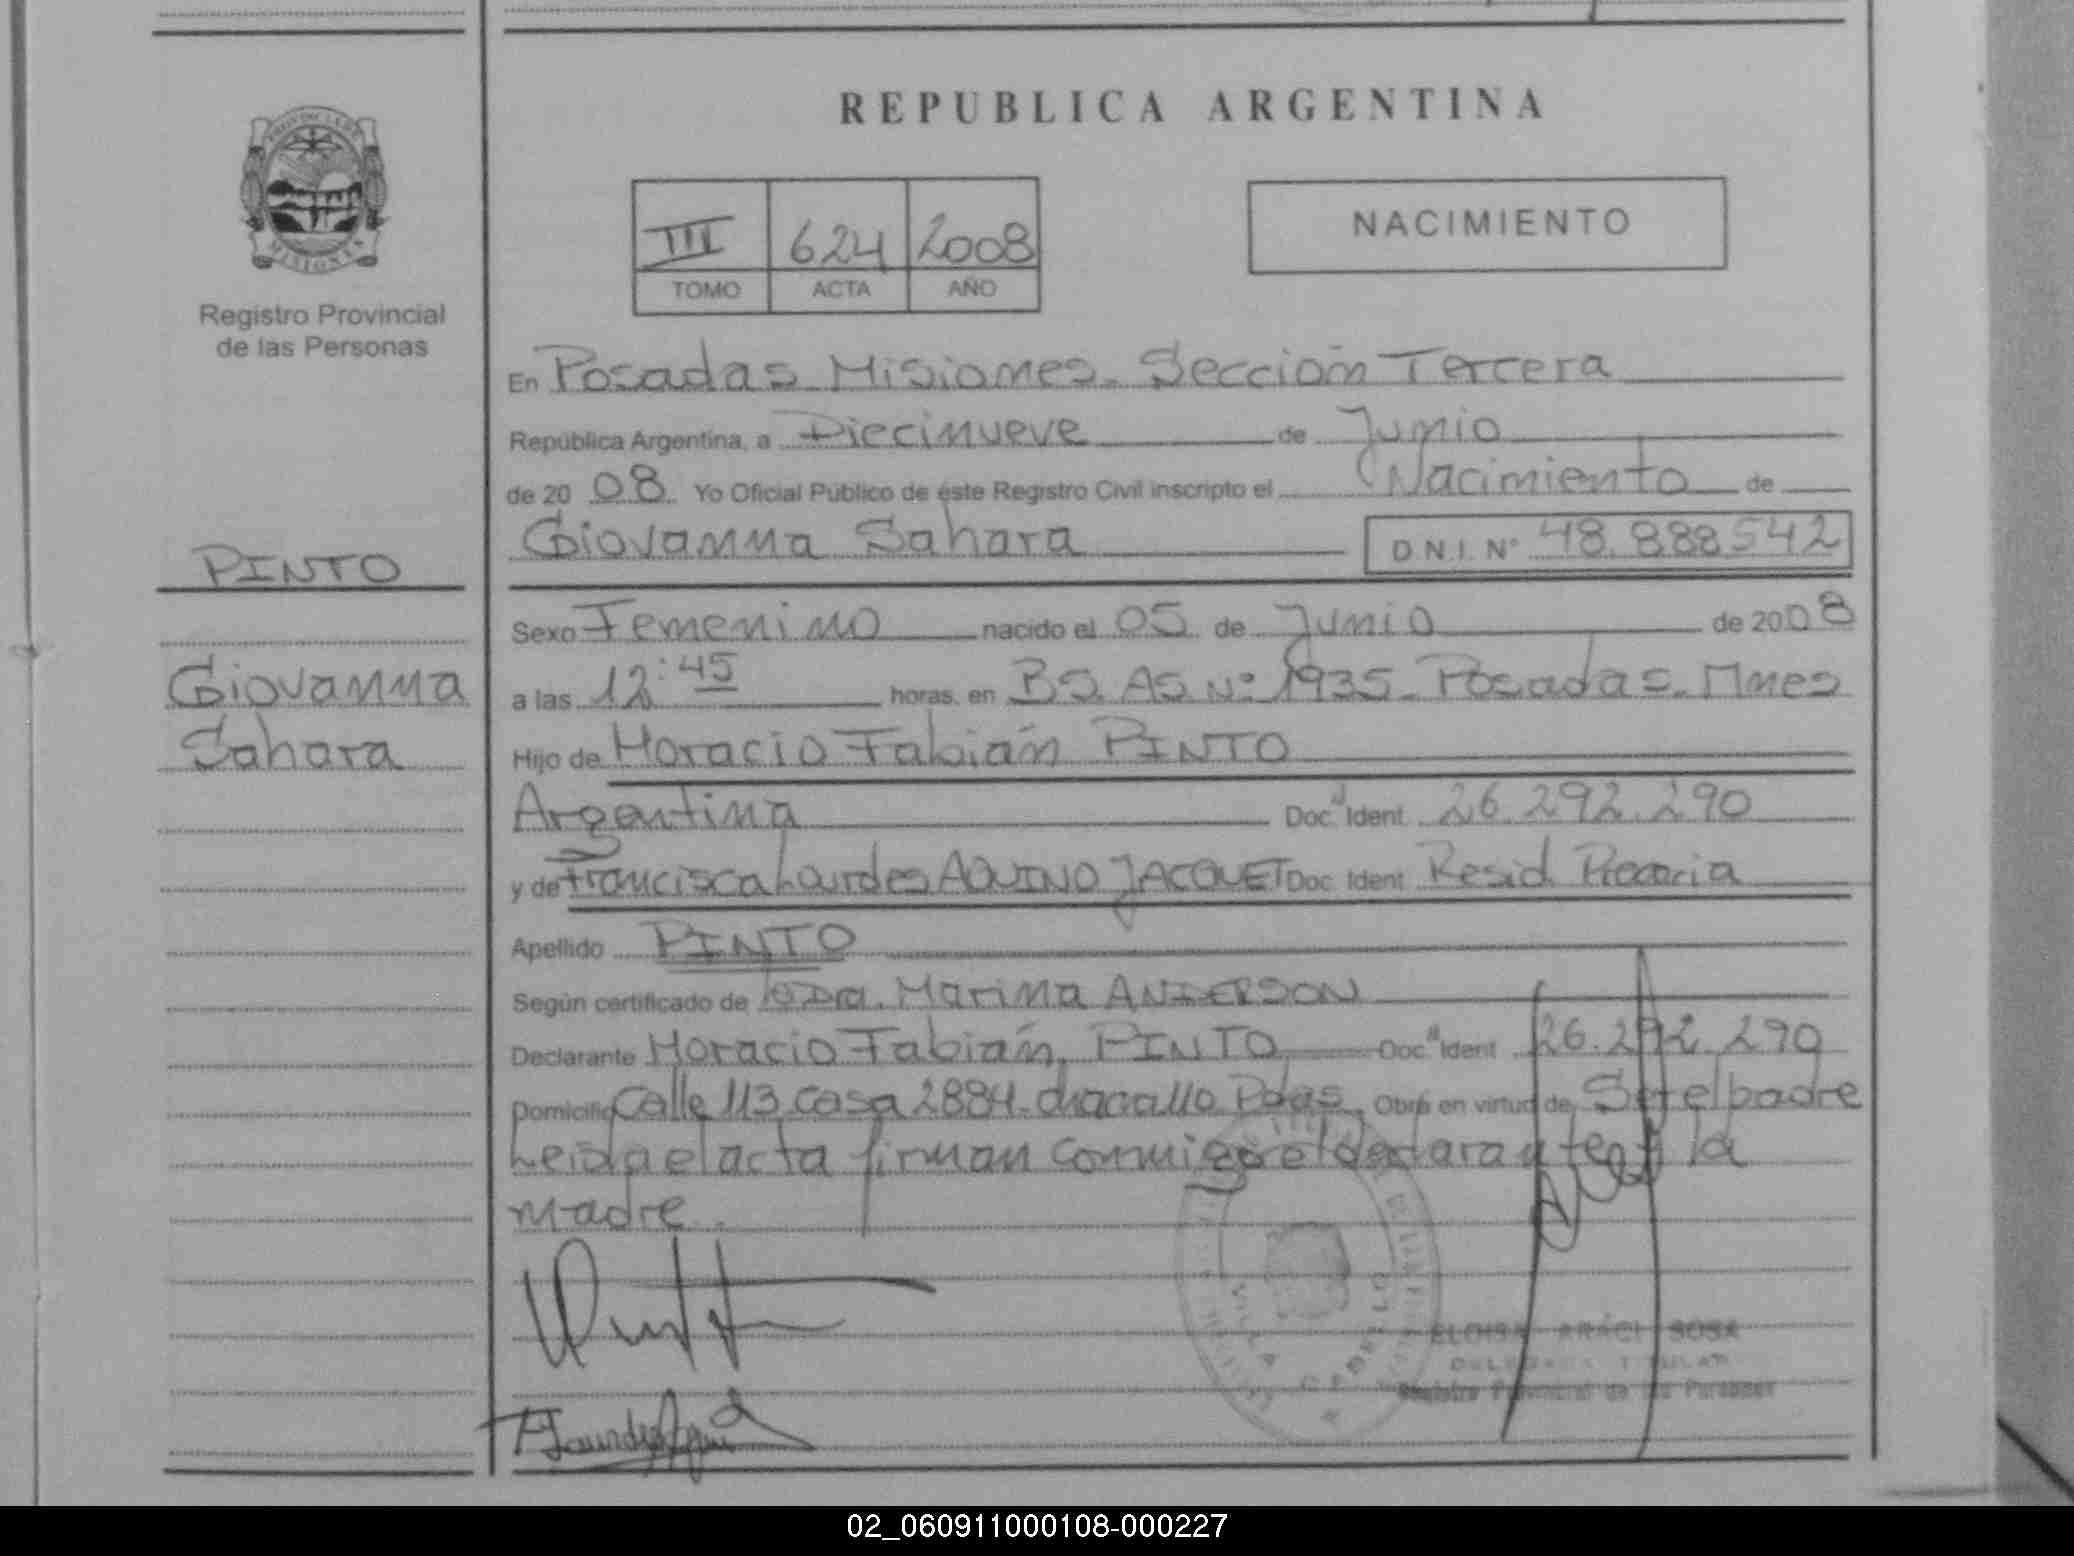 REPUBLICA ARGENTINA
PROVINCIA DE
MISIONES
Registro Provincial
de las Personas
III 624 2008
TOMO ACTA AÑO
NACIMIENTO
En Posadas Misiones. Sección Tercera
República Argentina, a Diecinueve de Junio
de 2008 Yo Oficial Público de éste Registro Civil inscripto el Nacimiento de
Giovanna Sahara D.N.I. N° 48.888542
PINTO
Giovanna
Sahara
Sexo Femenino nacido el 05 de Junio de 2008
a las 12:45 horas, en BS. AS N° 1935. Posadas. Mnes
Hijo de Horacio Fabián PINTO
Argentina Doc. Ident 26.292.290
y de Francisca Lourdes AQUINO JACQUET Doc. Ident Resid. Precaria
Apellido PINTO
Según certificado de Dra. Marina ANDERSON
Declarante Horacio Fabián, PINTO Doc. Ident 26.292.290
Domicilio Calle 113 casa 2884. chacra 110 Pdas. Obra en virtud de Ser el padre
Leida el acta firman conmigo el declarante y la
madre.
VILLA CABELLO
ELOISA ARACI SOSA
DELEGADA TITULAR
Registro Provincial de las Personas
02_060911000108-000227